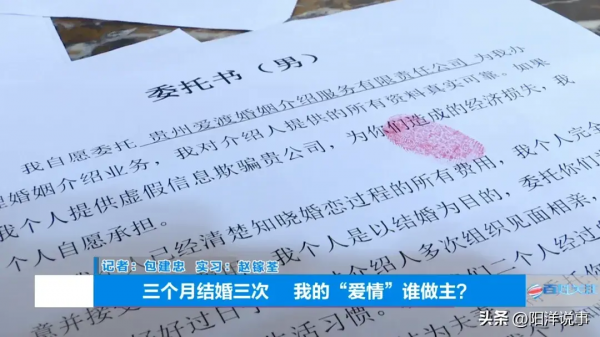 委托书（男）
我自愿委托 贵州爱渡婚姻介绍服务有限责任公司 为我办
理婚姻介绍业务，我对介绍人提供的所有资料真实可靠。如果
我个人提供虚假信息欺骗贵公司，为你们造成的经济损失，我
个人自愿承担。
已经清楚知晓婚恋过程的所有费用，我个人完全
我个人是以结婚为目的，委托你们
介绍人多次组织见面相亲，
们二个人经过
意并接受
好好过日子
生活习惯。
记者：包建忠 实习：赵镓荃
三个月结婚三次 我的“爱情”谁做主？
头条 @阳洋说事